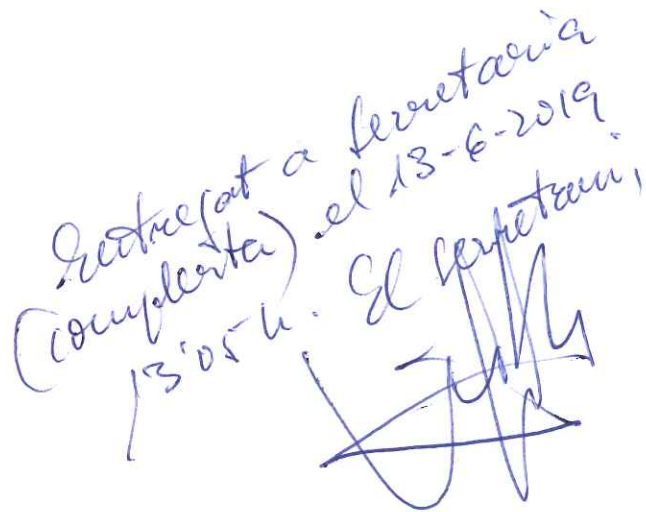 Entregat a Secretaria
(complerta) el 13-6-2019
13'05 h. El secretari,